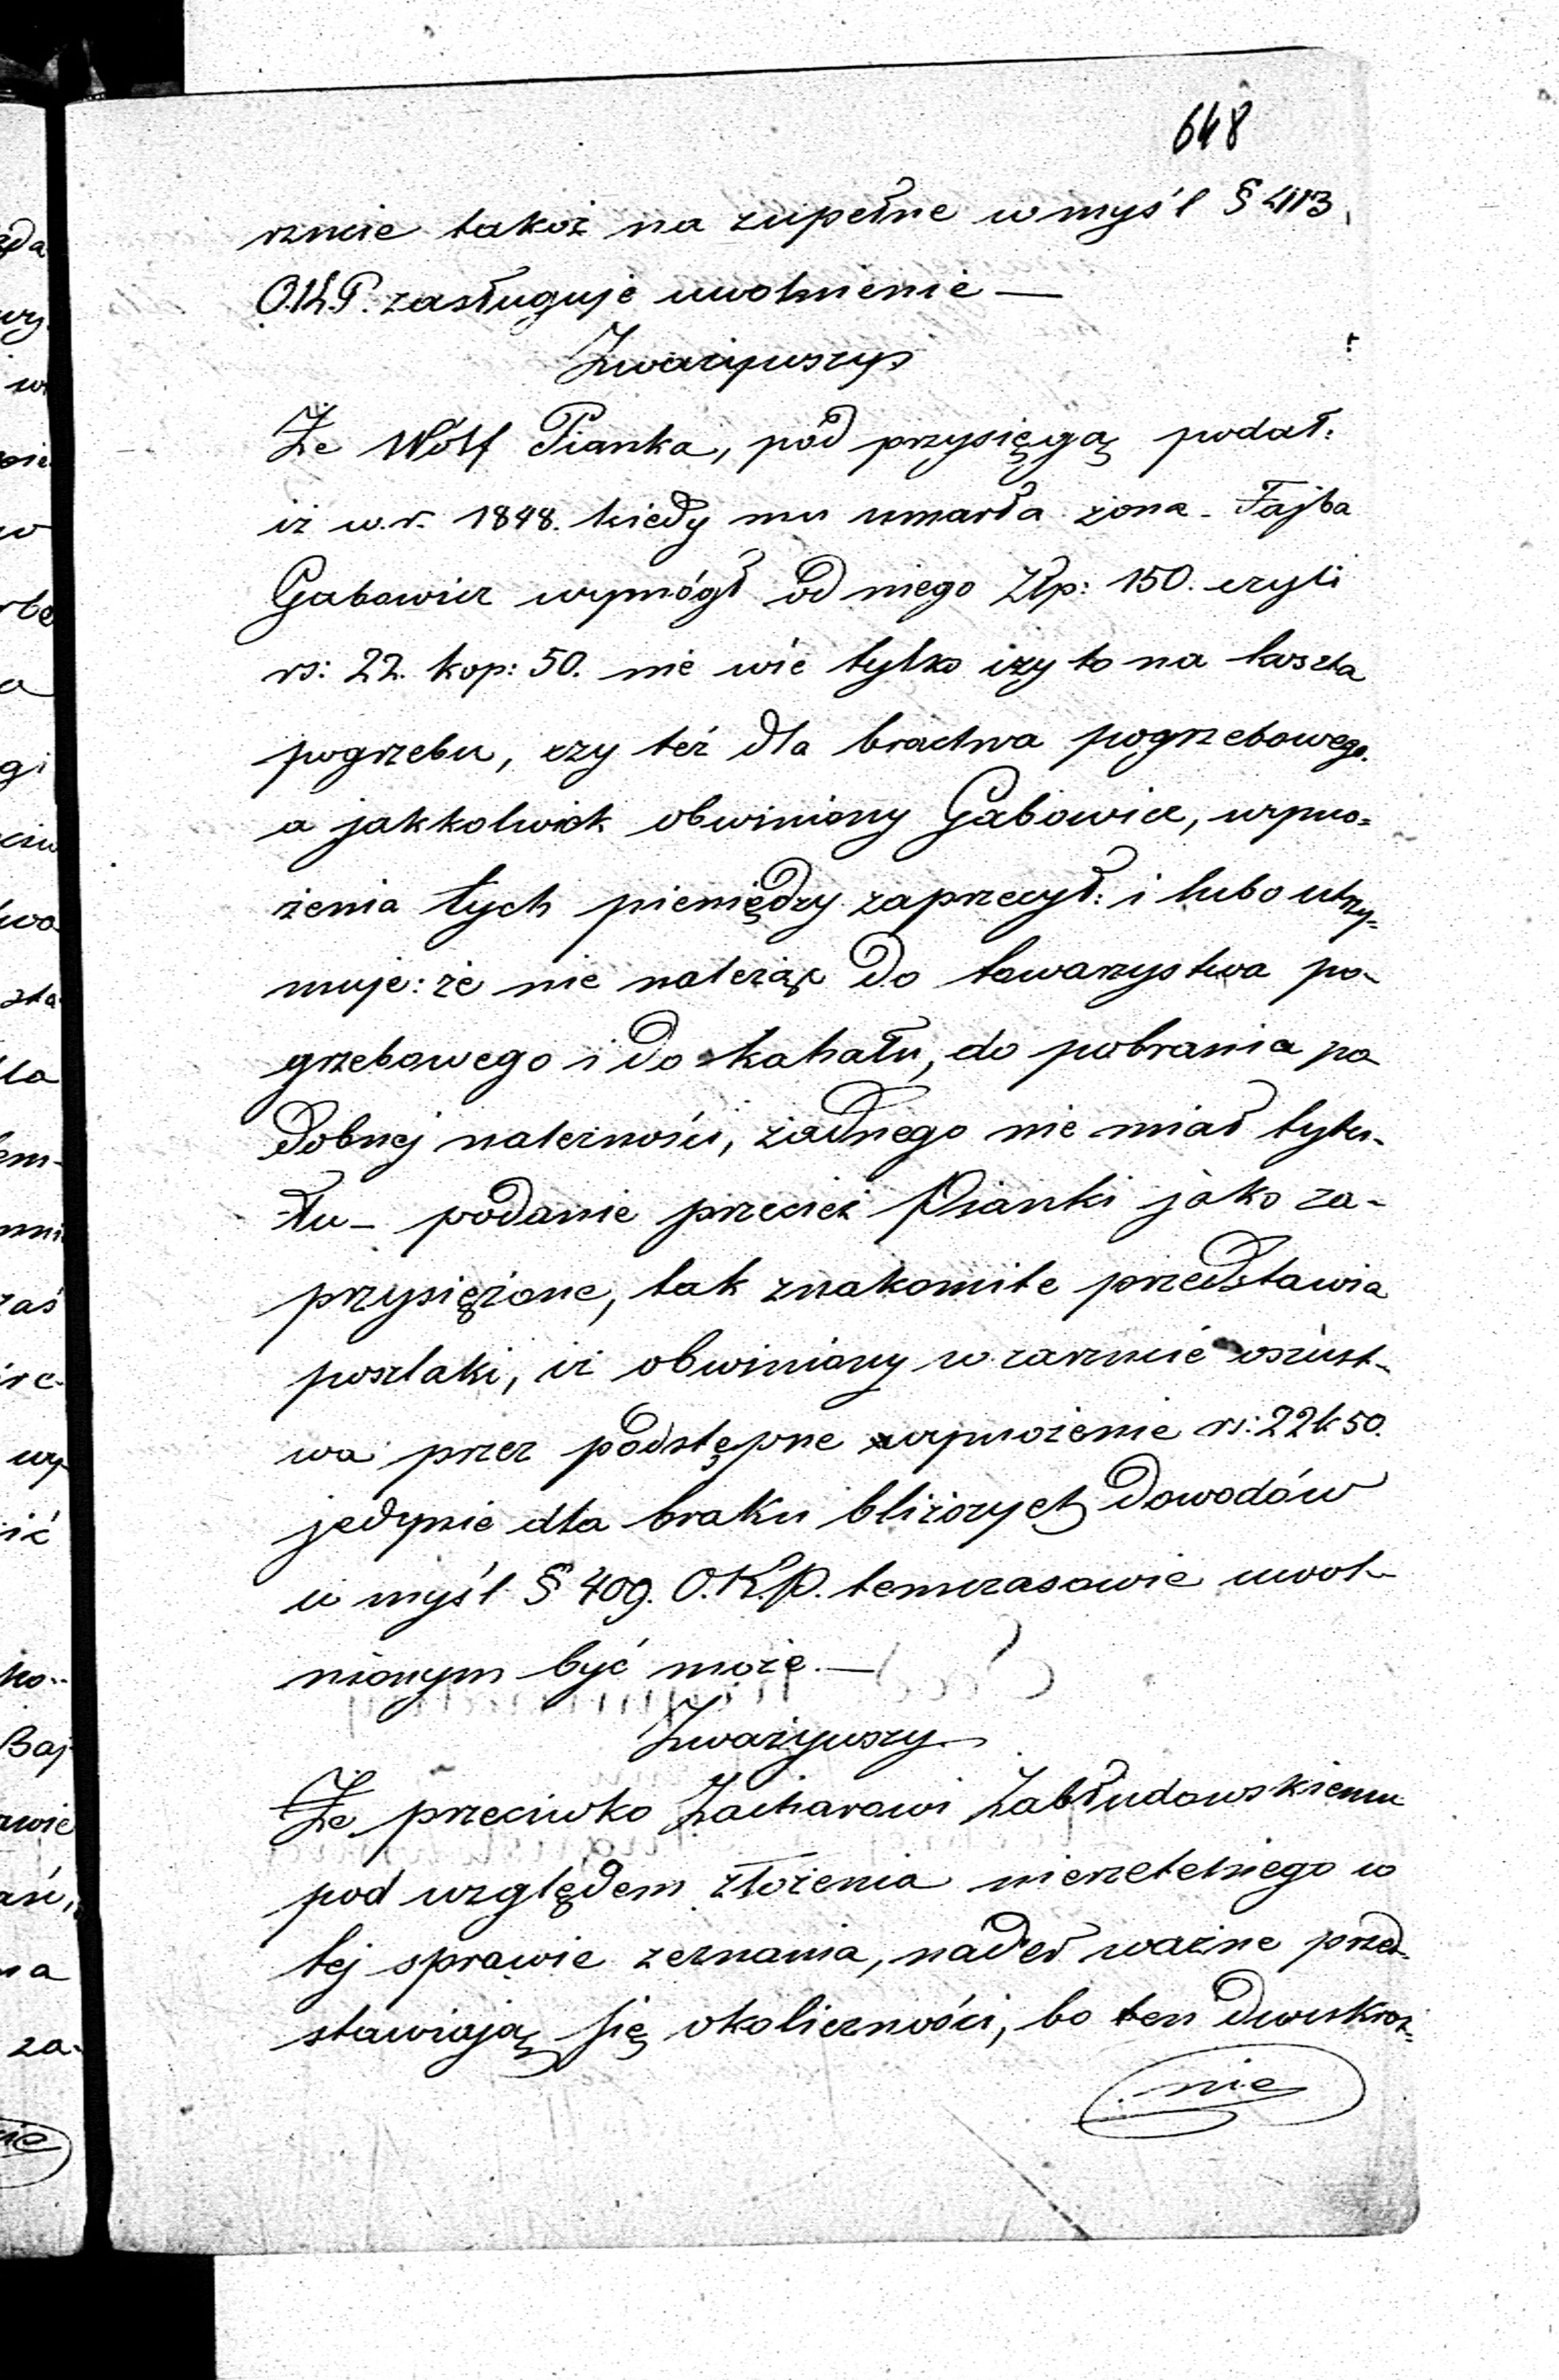 648
rzucie takoż na zupełne w myśl § 413.
O.K.P. zasługuje uwolnienie —
Zważywszy
Że Wolf Pianka, pod przysięgą podał:
iż w.r. 1848. kiedy mu umarła żona - Fajba
Gabowicz wymógł od niego Złp: 150. czyli
rs: 22. kop: 50. nie wie tylko czy to na koszta
pogrzebu, czy też dla bractwa pogrzebowego.
a jakkolwiek obwiniony Gabowicz, wymo=
żenia tych pieniędzy zaprzeczył: i lubo utrzy=
muje: że nie należąc do towarzystwa po-
grzebowego i do kahału, do pobrania po
dobnej należności, żadnego nie miał tytu-
łu - podanie przecież Pianki jako za-
przysiężone, tak znakomite przedstawia
poszlaki, iż obwiniony w zarzucie oszust-
wa przez podstępne wymożenie rs: 22 k 50.
jedynie dla braku bliższych dowodów
w myśl § 409. O.K.P. temczasowie uwol-
nionym być może. —
Zważywszy
Że przeciwko Zacharowi Zabłudowskiemu
pod względem złożenia nierzetelnego w
tej sprawie zeznania, nader ważne przed-
stawiają się okoliczności, bo ten dwukroz=
nie